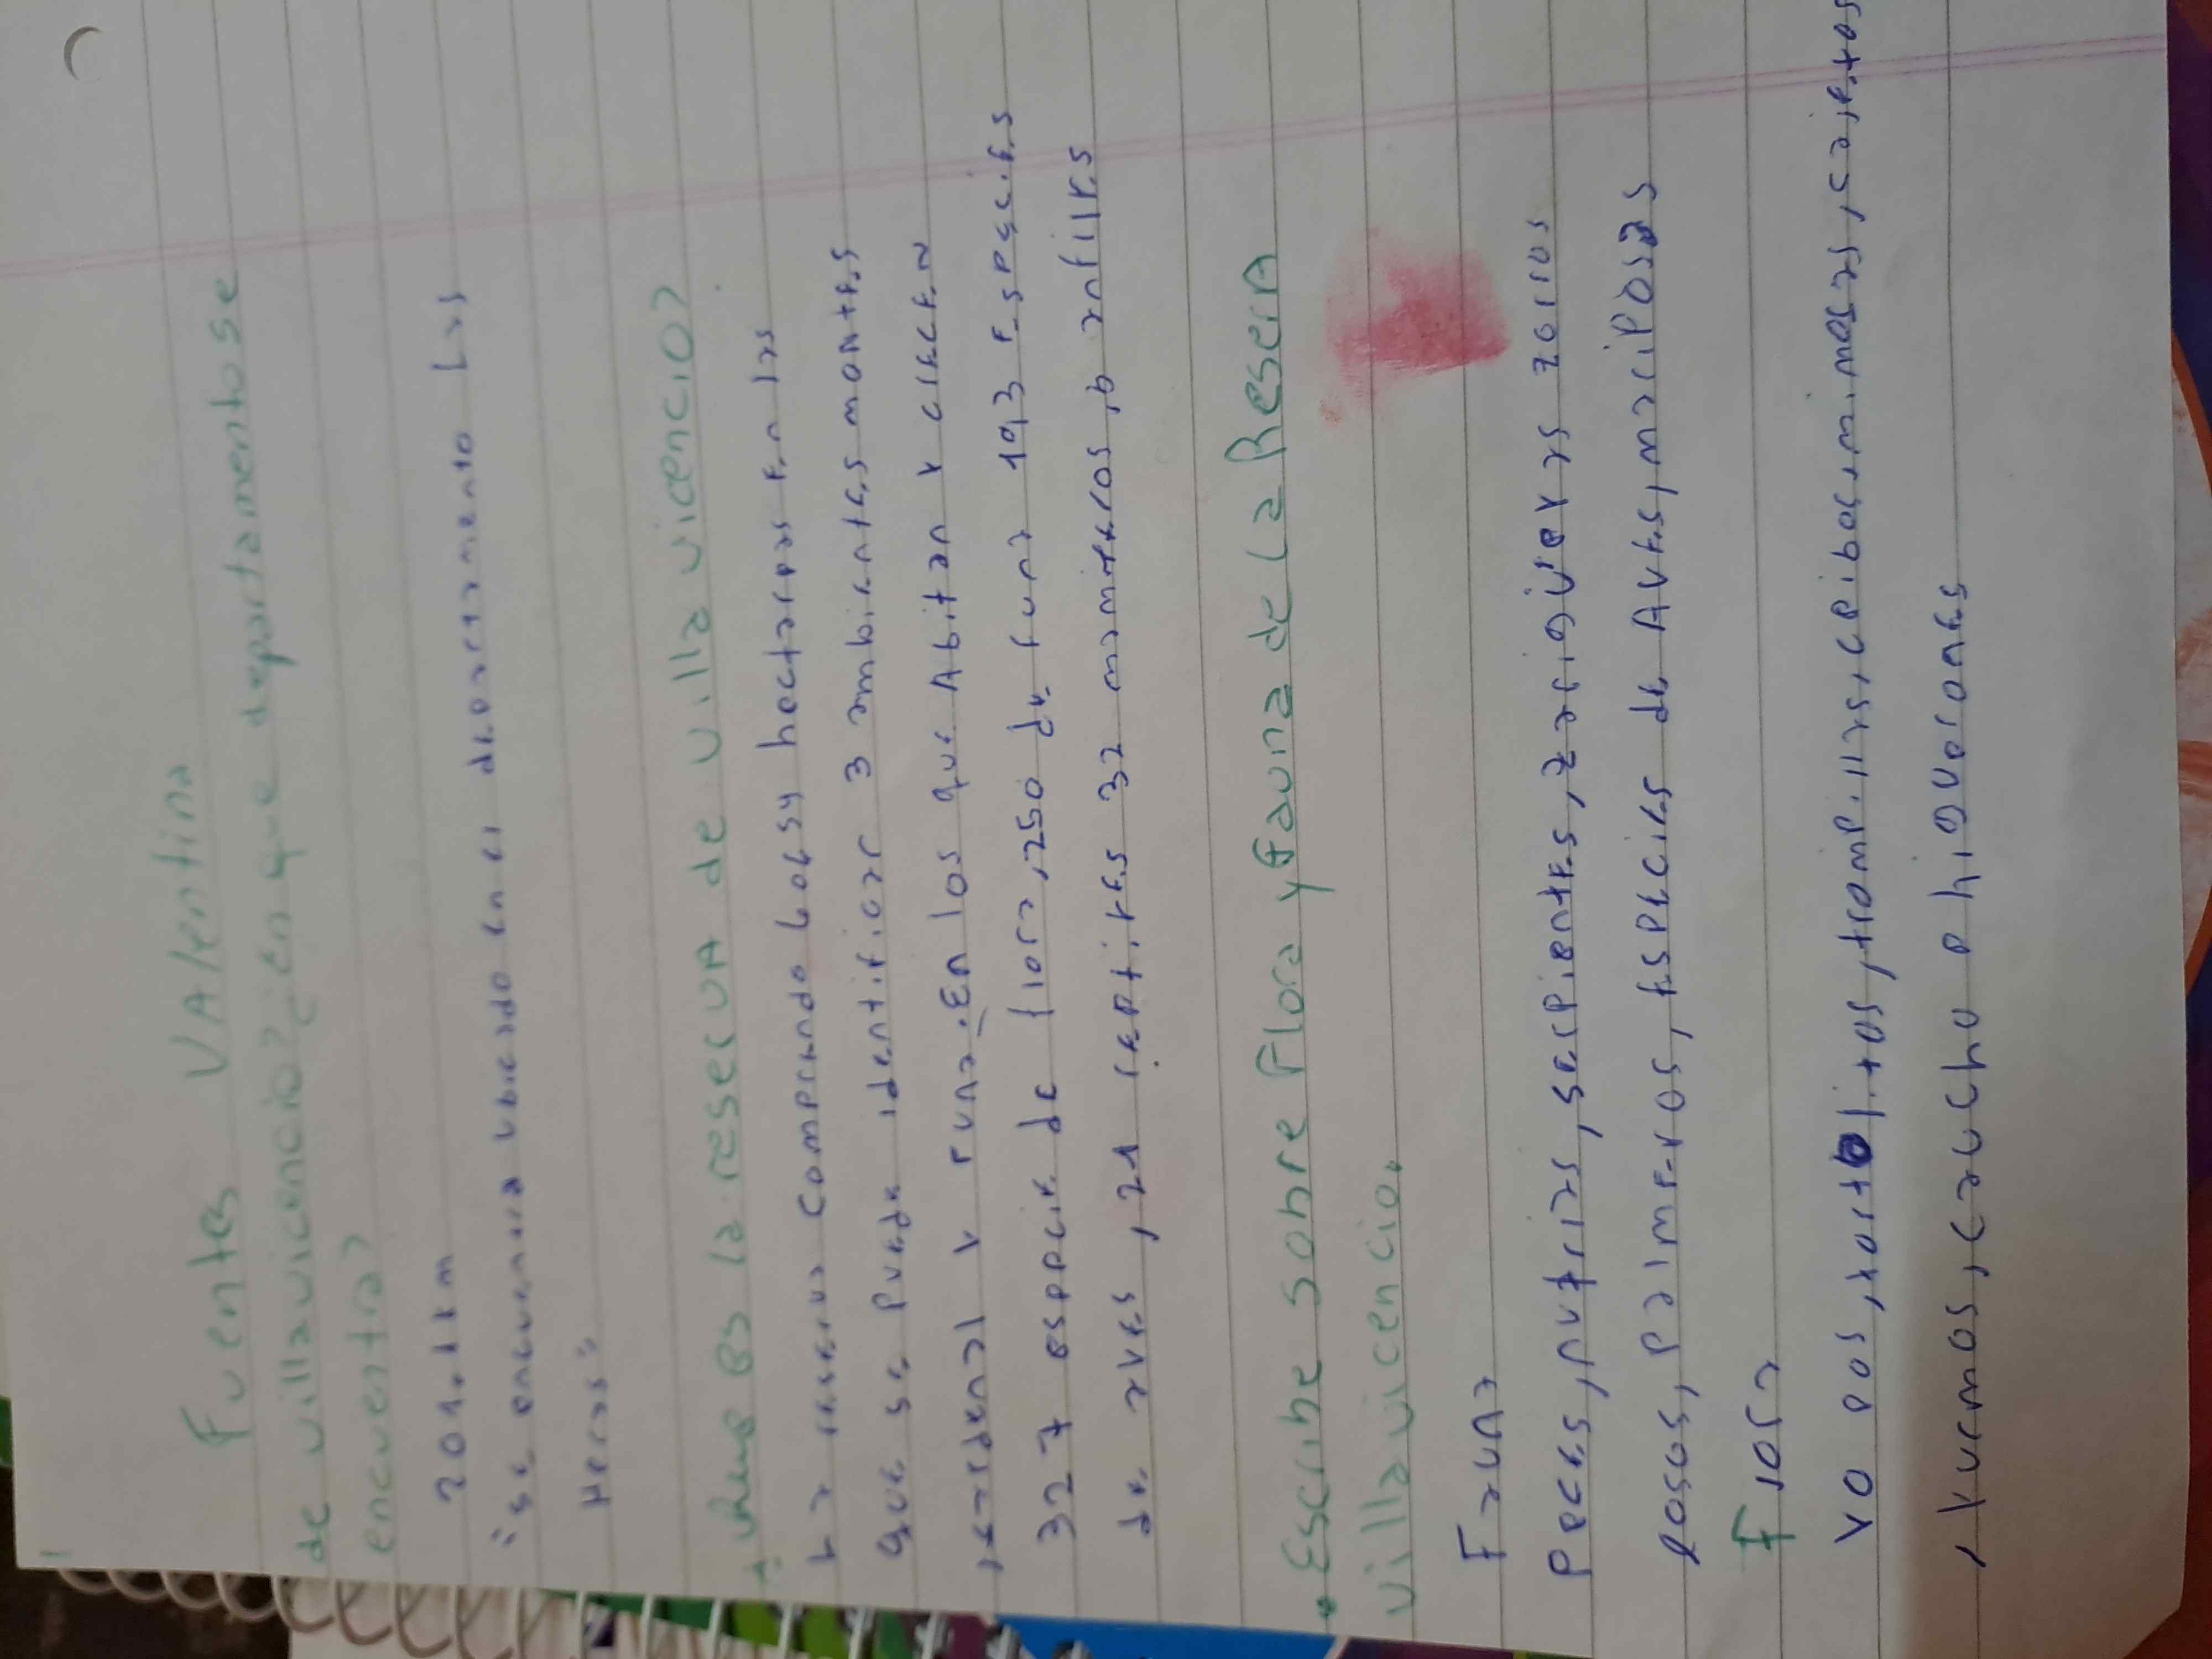 Fuentes VAlentina
de villavicencio? ¿En que departamento se
encuentra?
201.1km
"se encuentra ubicado en el departamento las
Heras"
la reserva de villa vicencio?
La reserva comprende hectareas en las
que se puede identificar 3 ambientes montes
y funa. En los que Abitan y crecen
327 especie de flora, 250 de funa 193 especies
de aves, 21 reptires 32 mamiteros, b anfilies
* Escribe sobre Flora y fauna de la Reserva
villavicencio.
Fauna
Peces, nutrias, serpientes, zarigüeyas zorros
osos, palmeros, especies de Aves, mariposas
Flora
trompillas, cactos
, yurmos, caucho e higuerones